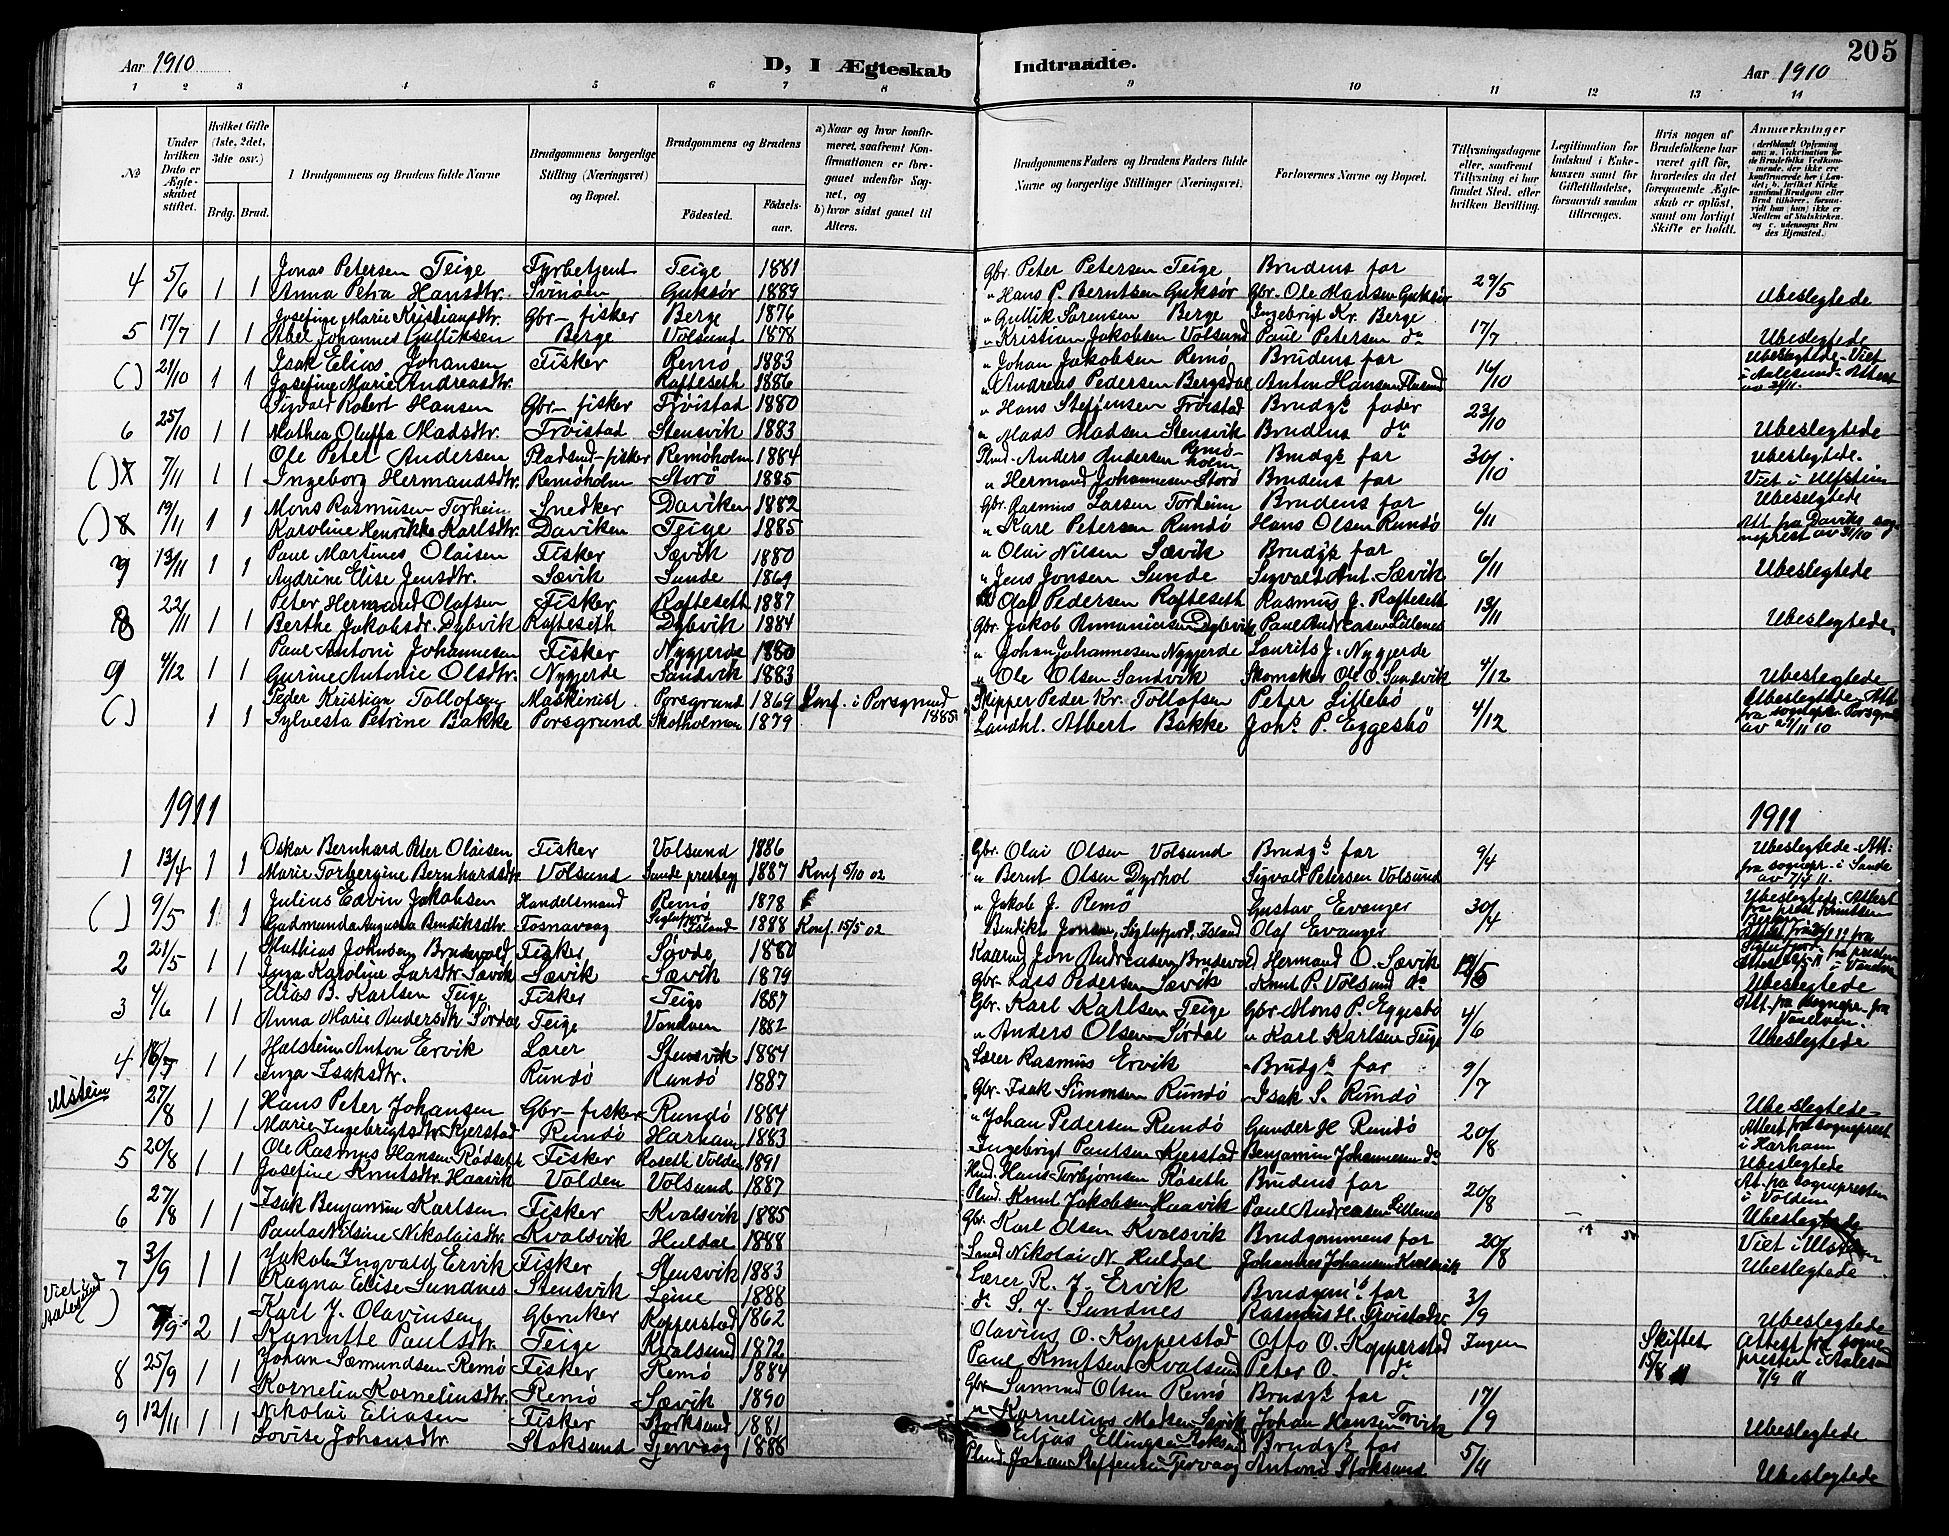 Aar 1910
D, I Ægteskab Indtraadte.
Aar 1910
205
1 2 3 4 5 6 7 8 9 10 11 12 13 14
№
Under hvilken Dato er Ægteskabet stiftet.
Hvilket Gifte (1ste, 2det, 3die osv.)
Brdg. Brud.
I Brudgommens og Brudens fulde Navne
Brudgommens borgerlige Stilling (Næringsvei) og Bopæl.
Brudgommens og Brudens
Fødested. Fødselsaar.
a) Naar og hvor konfirmeret, saafremt Konfirmationen er foregaaet udenfor Sognet, og
b) hvor sidst gaaet til Alters.
Brudgommens Faders og Brudens Faders fulde Navne og borgerlige Stillinger (Næringsvei).
Forlovernes Navne og Bopæl.
Tillysningsdagene eller, saafremt Tillysning ei har fundet Sted, efter hvilken Bevilling.
Legitimation for Indskud i Enkekassen samt for Giftetilladelse, forsaavidt saadan tiltrænges.
Hvis nogen af Brudefolkene har været gift før, hvorledes da det foregaaende Ægteskab er opløst, samt om lovligt Skifte er holdt.
Anmærkninger
4 5/6 1 1 Jonas Petersen Teige Fyrbetjent Teige 1881 Gbr. Peter Petersen Teige Brudens far 29/5
Anna Petra Hansdtr. Svinøen Guksør 1889 " Hans P. Berntsen Guksør Gbr. Ole Hansen Guksør Ubeslegtede
5 17/7 1 1 Josefine Marie Kristiansdtr. Gbr-fisker Berge 1876 " Gullik Sørensen Berge Ingebrigt Kr. Berge 17/7
Abel Johannes Gulliksen Berge Volsund 1878 " Kristian Jakobsen Volsund Paul Petersen do Ubeslegtede
( ) 21/10 1 1 Isak Elias Johansen Fisker Remø 1883 " Johan Jakobsen Remø Brudens far 16/10 Ubeslegtede - Viet
Josefine Marie Andreasdtr. Rafteseth 1886 " Andreas Pedersen Bergsdal Anton Hansen i Aalesund. Attest av
6 25/10 1 1 Sigvald Robert Hansen Gbr-fisker Frøistad 1880 " Hans Steffensen Frøistad Brudgs fader 23/10
Mathea Oluffa Madsdtr. Frøistad Stensvik 1883 " Mads Madsen Stensvik Brudens do Ubeslegtede
( ) 7/11 1 1 Ole Peter Andersen Pladsmd-fisker Remøholm 1884 Plmd. Anders Andersen Remøholm Brudgs far 30/10 Ubeslegtede.
Ingeborg Hermandsdtr. Remøholm Storø 1885 " Hermand Johannesen Storø Viet i Ulfstein
( ) 8 19/11 1 1 Mons Rasmusen Torheim Snedker Daviken 1882 Gbr. Rasmus Larsen Torheim Brudens far 6/11 Ubeslegtede
Karoline Henrikke Karlsdtr. Daviken Teige 1885 " Karl Petersen Rundø Hans Olsen Rundø Att. fra Daviks sogneprest av 31/10
7 13/11 1 1 Paul Martines Olaisen Fisker Sævik 1880 " Olai Nilsen Sævik Brudgs far 6/11
Andrine Elise Jensdtr. Sævik Sunde 1869 " Jens Jonsen Sunde Sigvald Ant. Sævik Ubeslegtede
8 22/11 1 1 Peter Hermand Olafsen Fisker Rafteseth 1887 Olaf Pedersen Rafteseth Rasmus J. Rafteseth 13/11
Berthe Jakobsdr. Dybvik Rafteseth Dybvik 1884 Gbr. Jakob Ananiassen Dybvik Paul Andreasen Lillenes Ubeslegtede.
9 4/12 1 1 Paul Antoni Johannesen Fisker Nygjerde 1880 " Johan Johannesen Nygjerde Laurits J. Nygjerde 4/12
Gurine Antonie Olsdtr. Nygjerde Sandvik 1883 " Ole Olsen Sandvik Skomaker Ole O. Sandvik Ubeslegtede
( ) 1 1 Peder Kristian Tollofsen Maskinist Porsgrund 1869 Konf. i Porsgrund 1885 Skipper Peder Kr. Tollofsen Peter Lillebø 4/12 Ubeslegtede. Att.
Sylvesta Petrine Bakke Porsgrund Skotholmen 1879 Landhl. Albert Bakke Johs. P. Eggesbö fra sognepr. Porsgrund av 21/11 10
1911 1911
1 13/4 1 1 Oskar Bernhard Peter Olaisen Fisker Volsund 1886 Gbr. Olai Olsen Volsund Brudgs far 9/4 Ubeslegtede - Att:
Marie Torbergine Bernhardsdtr Volsund Sande prestegj 1887 Konf 5/10 02 " Bernt Olsen Dyrhol Sigvald Petersen Volsund fra sognepr. i Sande av 7/4 11.
( ) 9/5 1 1 Julius Edvin Jakobsen Handelsmand Remø 1878 " Jakob J. Remø Gustav Evanger 30/4 Ubeslegtede. Attest
Gudmunda Augusta Bendiksdtr. Fosnavaag Siglufjord Island 1888 Konf. 15/5 02 Bendikt Jonsen, Siglufjord, Island Olaf Evanger fra prest Knutsen Bergen
2 21/5 1 1 Mathias Johnsen Brudevold Fisker Søvde 1880 Kaarmd Jon Andreasen Brudevold Hermand O. Sævik
Inga Karoline Larsdtr Sævik Sævik Sævik 1879 Gbr. Lars Pedersen Sævik Knut P. Volsund do Ubeslegtede
3 4/6 1 1 Elias B. Karlsen Teige Fisker Teige 1887 Gbr. Karl Karlsen Teige Gbr Mons P. Eggesbö 4/6 Att. fra sognepr. fra
Anna Marie Andersdtr Sørdal Teige Vandven 1882 " Anders Olsen Sørdal " Karl Karlsen Teige Vandven. Ubeslegtede
4 16/7 1 1 Halstein Anton Ervik Lærer Stensvik 1884 Lærer Rasmus Ervik Brudgs far 9/7
Inga Isaksdtr. Rundø Rundø 1887 Gbr- Isak Simonsen Rundø Isak S. Rundø Ubeslegtede
Ulstein 27/8 1 1 Hans Peter Johansen Gbr-fisker Rundø 1884 " Johan Pedersen Rundø Gunder H Rundø 20/8 Attest fra sogneprest
Marie Ingebrigtsdtr Kjerstad Rundø Harham 1883 Ingebrigt Paulsen Kjerstad Benjamin Johannesen do i Harham Ubeslegtede
5 20/8 1 1 Ole Rasmus Hansen Rødseth Fisker Røseth Volden 1891 Hmd. Hans Torbjørnsen Røseth Brudens far 20/8 At. fra sognepresten
Josefine Knutsdtr. Haavik Volden Volsund 1887 Plmd. Knut Jakobsen Haavik Paul Andreasen Lillenes i Volden
6 27/8 1 1 Isak Benjamin Karlsen Fisker Kvalsvik 1885 Gbr. Karl Olsen Kvalsvik Brudgommens far 20/8 Ubeslegtede
Paula Nilsine Nikolaisdtr. Kvalsvik Huldal 1888 Nikolai N. Huldal Johannes Johansen Kvalsvik Viet i Ulstein
7 3/9 1 1 Jakob Ingvald Ervik Fisker Stensvik 1883 Lærer R. J Ervik Brudgom's far 3/9 Ubeslegtede
Ragna Elise Sundnes Stensvik Leine 1888 do S. J. Sundnes Rasmus H. Frøistad Ubeslegtede
Viet i Aalesund ) 7/9 2 1 Karl J. Olavinsen Gbruker Kopperstad 1862 Olavius O. Kopperstad Otto O. Kopperstad Ingen Skiftet 15/8 11 Attest fra sogne
Kanutte Paulsdtr. Teige Kvalsund 1872 Paul Knutsen Kvalsund Peter O. do presten i Aalesund 7/9 11
8 25/9 1 1 Johan Sæmundsen Remø Fisker Remø 1884 Gbr Samund Olsen Remø Brudgs far 17/9
Kornelia Korneliusdtr. Remø Sævik 1890 " Kornelius Madsen Sævik Johan Hansen Torvik Ubeslegtede
9 12/11 1 1 Nikolai Eliasen Fisker Stoksund 1881 " Elias Ellingsen Stoksund Brudgs far 5/11
Lovise Johansdtr. Stoksund Gjervaag 1888 Plmd Johan Steffensen Gjervaag Antoni Stoksund Ubeslegtede